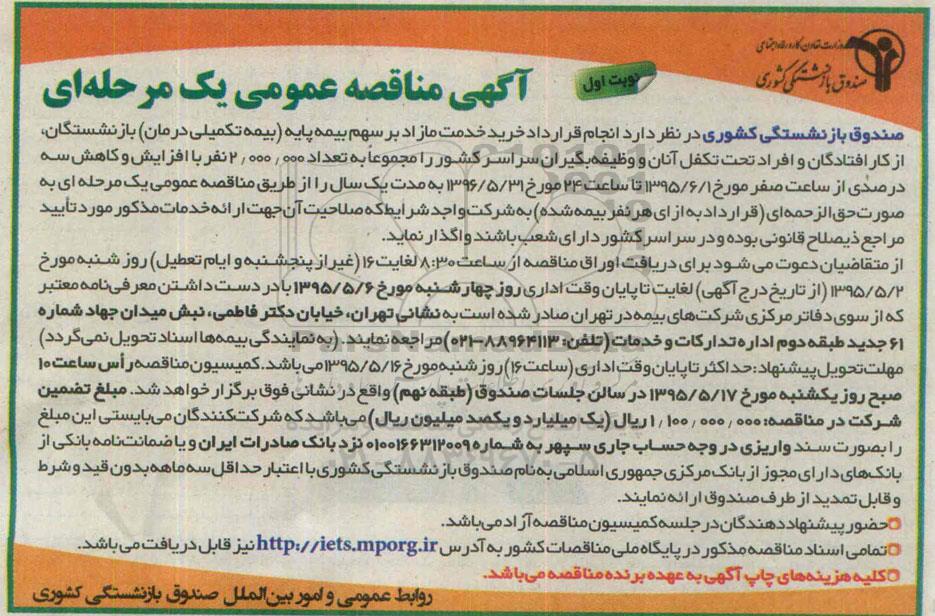 وزارت تعاون، کار و رفاه اجتماعی
صندوق بازنشستگی کشوری
نوبت اول
آگهی مناقصه عمومی یک مرحله‌ای
صندوق بازنشستگی کشوری در نظر دارد انجام قرارداد خرید خدمت مازاد بر سهم بیمه پایه (بیمه تکمیلی درمان) بازنشستگان،
از کارافتادگان و افراد تحت تکفل آنان و وظیفه‌بگیران سراسر کشور را مجموعاً به تعداد ۲٫۰۰۰٫۰۰۰ نفر با افزایش و کاهش سه
درصدی از ساعت صفر مورخ ۱۳۹۵/۶/۱ تا ساعت ۲۴ مورخ ۱۳۹۶/۵/۳۱ به مدت یک سال را از طریق مناقصه عمومی یک مرحله ای به
صورت حق‌الزحمه‌ای (قرارداد به ازای هر نفر بیمه شده) به شرکت واجد شرایط که صلاحیت آن جهت ارائه خدمات مذکور مورد تأیید
مراجع ذیصلاح قانونی بوده و در سراسر کشور دارای شعب باشند واگذار نماید.
از متقاضیان دعوت می شود برای دریافت اوراق مناقصه از ساعت ۸:۳۰ لغایت ۱۶ (غیر از پنجشنبه و ایام تعطیل) روز شنبه مورخ
۱۳۹۵/۵/۲ (از تاریخ درج آگهی) لغایت تا پایان وقت اداری روز چهارشنبه مورخ ۱۳۹۵/۵/۶ با در دست داشتن معرفی‌نامه معتبر
که از سوی دفاتر مرکزی شرکت‌های بیمه در تهران صادر شده است به نشانی تهران، خیابان دکتر فاطمی، نبش میدان جهاد شماره
۶۱ جدید طبقه دوم اداره تدارکات و خدمات (تلفن: ۸۸۹۶۴۱۱۳-۰۲۱) مراجعه نمایند. (به نمایندگی بیمه‌ها اسناد تحویل نمی‌گردد)
مهلت تحویل پیشنهاد: حداکثر تا پایان وقت اداری (ساعت ۱۶) روز شنبه مورخ ۱۳۹۵/۵/۱۶ می‌باشد. کمیسیون مناقصه رأس ساعت ۱۰
صبح روز یکشنبه مورخ ۱۳۹۵/۵/۱۷ در سالن جلسات صندوق (طبقه نهم) واقع در نشانی فوق برگزار خواهد شد. مبلغ تضمین
شرکت در مناقصه: ۱٫۱۰۰٫۰۰۰٫۰۰۰ ریال (یک میلیارد و یکصد میلیون ریال) می‌باشد که شرکت‌کنندگان می‌بایستی این مبلغ
را بصورت سند واریزی در وجه حساب جاری سپهر به شماره ۰۱۰۰۱۶۶۳۱۲۰۰۹ نزد بانک صادرات ایران و یا ضمانت‌نامه بانکی از
بانک‌های دارای مجوز از بانک مرکزی جمهوری اسلامی به نام صندوق بازنشستگی کشوری با اعتبار حداقل سه ماهه بدون قید و شرط
و قابل تمدید از طرف صندوق ارائه نمایند.
حضور پیشنهاددهندگان در جلسه کمیسیون مناقصه آزاد می‌باشد.
تمامی اسناد مناقصه مذکور در پایگاه ملی مناقصات کشور به آدرس http://iets.mporg.ir نیز قابل دریافت می‌باشد.
کلیه هزینه‌های چاپ آگهی به عهده برنده مناقصه می‌باشد.
روابط عمومی و امور بین‌الملل صندوق بازنشستگی کشوری
ParsNamadData